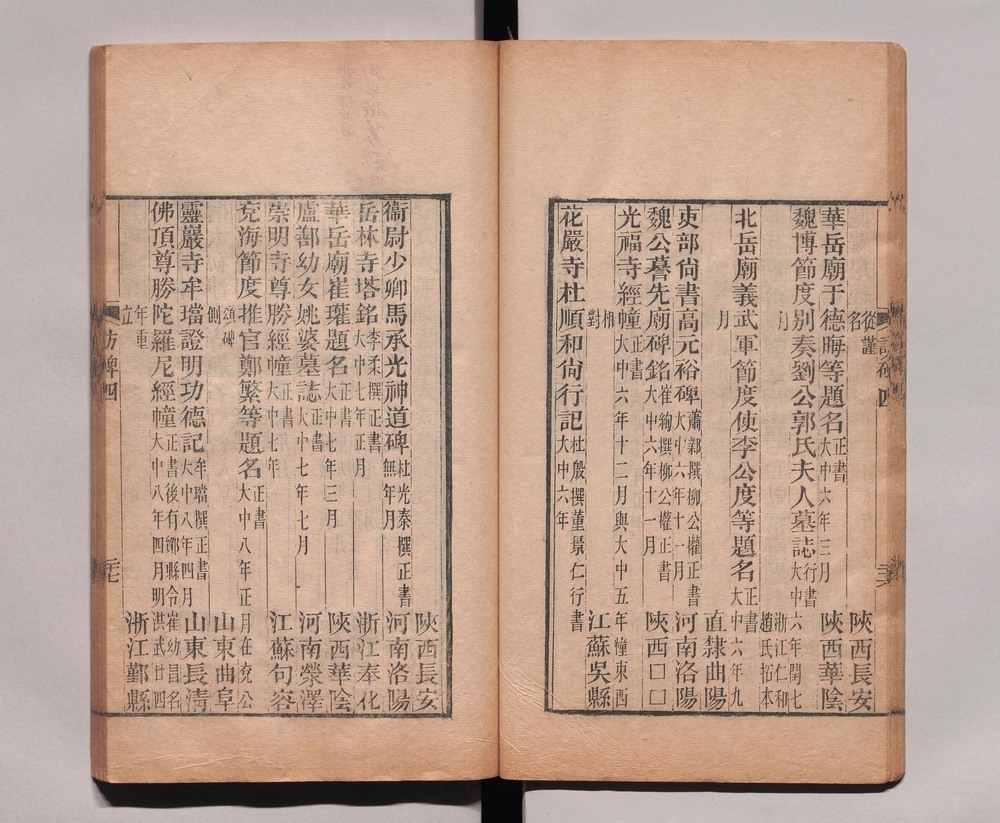 訪碑四
從謹名 陝西長安
華岳廟于德晦等題名 正書 大中六年三月 陝西華陰
魏博節度别奏劉公郭氏夫人墓誌 行書 大中六年閏七
月 浙江仁和趙氏拓本
北岳廟義武軍節度使李公度等題名 正書 大中六年九
月 直隸曲陽
吏部尚書高元裕碑 蕭鄴撰柳公權正書 大中六年十一月 河南洛陽
魏公謩先廟碑銘 崔絢撰柳公權正書 大中六年十一月 陝西囗囗
光福寺經幢 正書 大中六年十二月與大中五年幢東西
相對 江蘇吳縣
花嚴寺杜順和尚行記 杜殷撰董景仁行書 大中六年
陝西長安
衞尉少卿馬承光神道碑 杜光泰撰正書 無年月 河南洛陽
岳林寺塔銘 李柔撰正書 大中七年正月 浙江奉化
華岳廟崔瓘題名 正書 大中七年三月 陝西華陰
盧鄯幼女姚婆墓誌 正書 大中七年七月 河南滎澤
崇明寺尊勝經幢 正書 大中七年 江蘇句容
兗海節度推官鄭繁等題名 正書 大中八年正月在兗公
頌碑側 山東曲阜
靈巖寺牟璫證明功德記 牟璫撰正書 大中八年四月 山東長清
佛頂尊勝陀羅尼經幢 正書後有鄉縣令崔幼昌名 大中八年四月明洪武廿四
年重立 浙江鄞縣
訪碑四